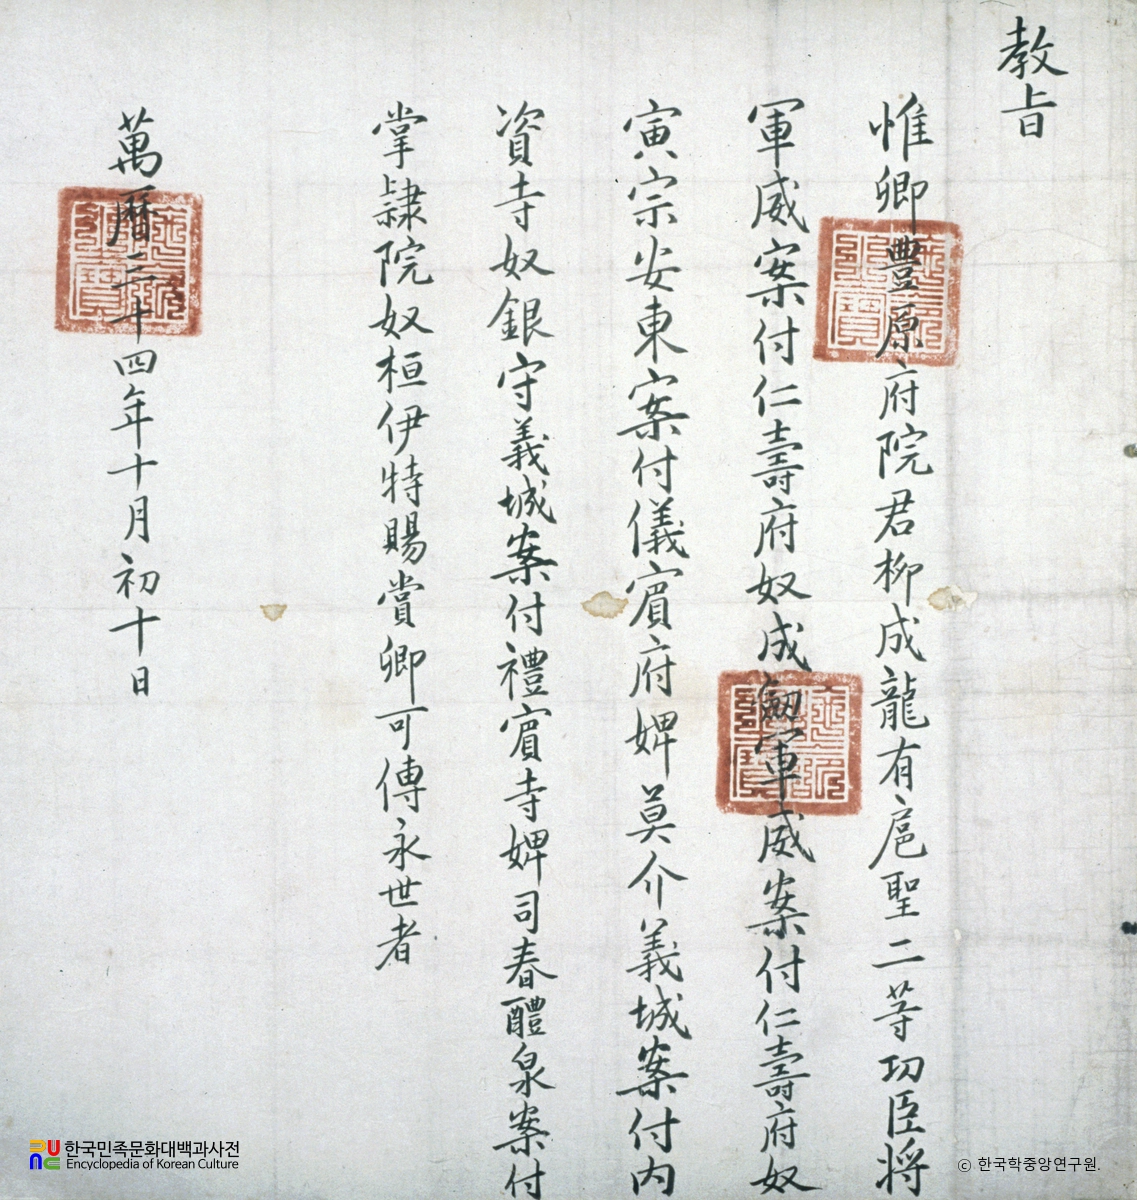 教旨
惟卿豐原府院君柳成龍有扈聖二等功臣將
軍威案付仁壽府奴成劒軍威案付仁壽府奴
寅宗安東案付儀賓府婢莫介義城案付內
資寺奴銀守義城案付禮賓寺婢司春醴泉案付
掌隷院奴桓伊特賜賞卿可傳永世者
萬曆三十四年十月初十日
한국민족문화대백과사전
Encyclopedia of Korean Culture
ⓒ 한국학중앙연구원.